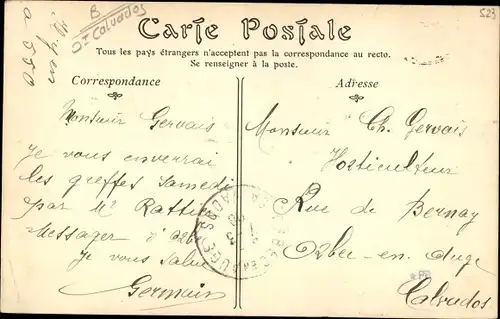 B
Ot Calvados
523
Carte Postale
Tous les pays étrangers n'acceptent pas la correspondance au recto.
Se renseigner à la poste.
Correspondance
Monsieur Gervais
Je vous enverrai
les greffes Samedi
par Mr Rattier
Messager d'Orbec
Je vous salue
Germain
Adresse
Monsieur Ch. Gervais
Horticulteur
Rue de Bernay
Orbec-en-Auge
Calvados